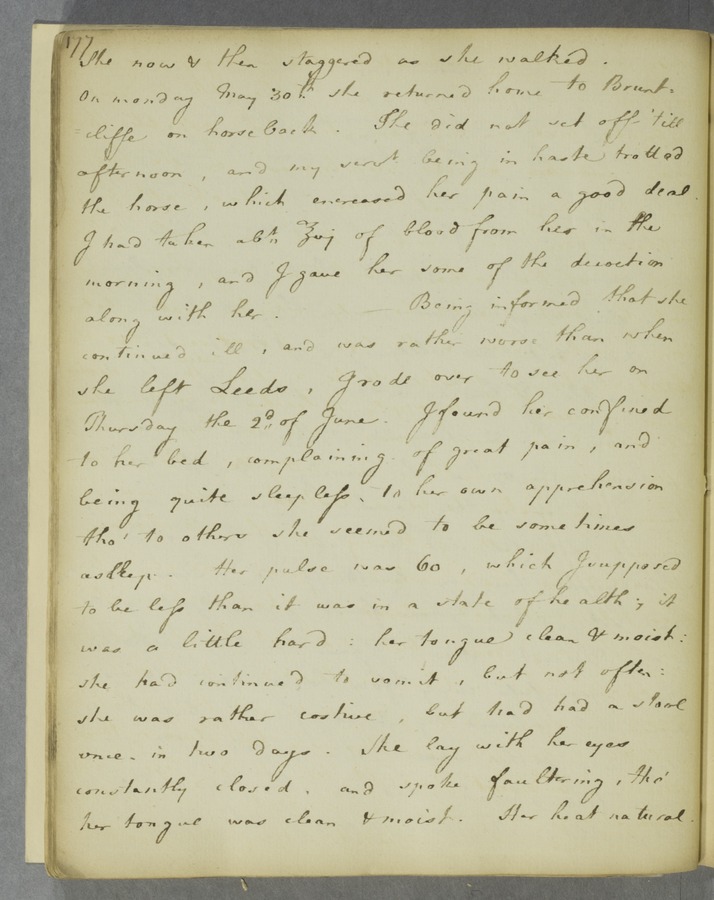 177
She now & then staggered as she walked.
On monday May 30th she returned home to Brunt=
=cliffe on horseback. She did not set off 'till
afternoon, and my servt being in haste trotted
the horse, which encreased her pain a good deal.
I had taken abt ʒvij of blood from her in the
morning, and I gave her some of the decoction
along with her. — Being informed that she
continued ill, and was rather worse than when
she left Leeds, I rode over to see her on
Thursday the 2d of June. I found her confined
to her bed, complaining of great pain, and
being quite sleepless, to her own apprehension
tho' to others she seemed to be sometimes
asleep. Her pulse was 60, which I supposed
to be less than it was in a state of health; it
was a little hard: her tongue clean & moist:
she had continued to vomit, but not often:
she was rather costive, but had had a stool
once in two days. She lay with her eyes
constantly closed, and spoke faultering, tho'
her tongue was clean & moist. Her heat natural.